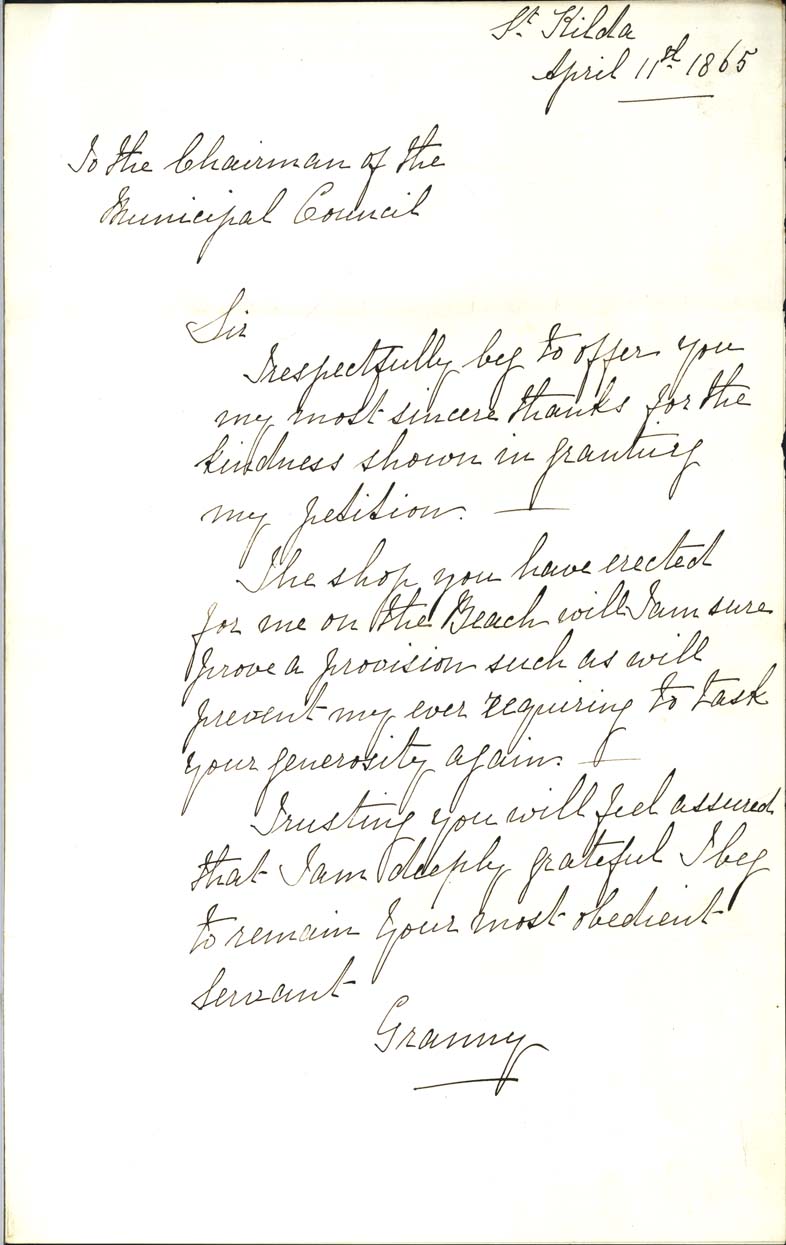 St Kilda
April 11st 1865
To the Chairman of the
Municipal Council
Sir
I respectfully beg to offer you
my most sincere thanks for the
kindness shown in granting
my petition. —
The shop you have erected
for me on the Beach will I am sure
prove a provision such as will
prevent my ever requiring to task
your generosity again. —
Trusting you will feel assured
that I am deeply grateful I beg
to remain Your most obedient
Servant
Granny